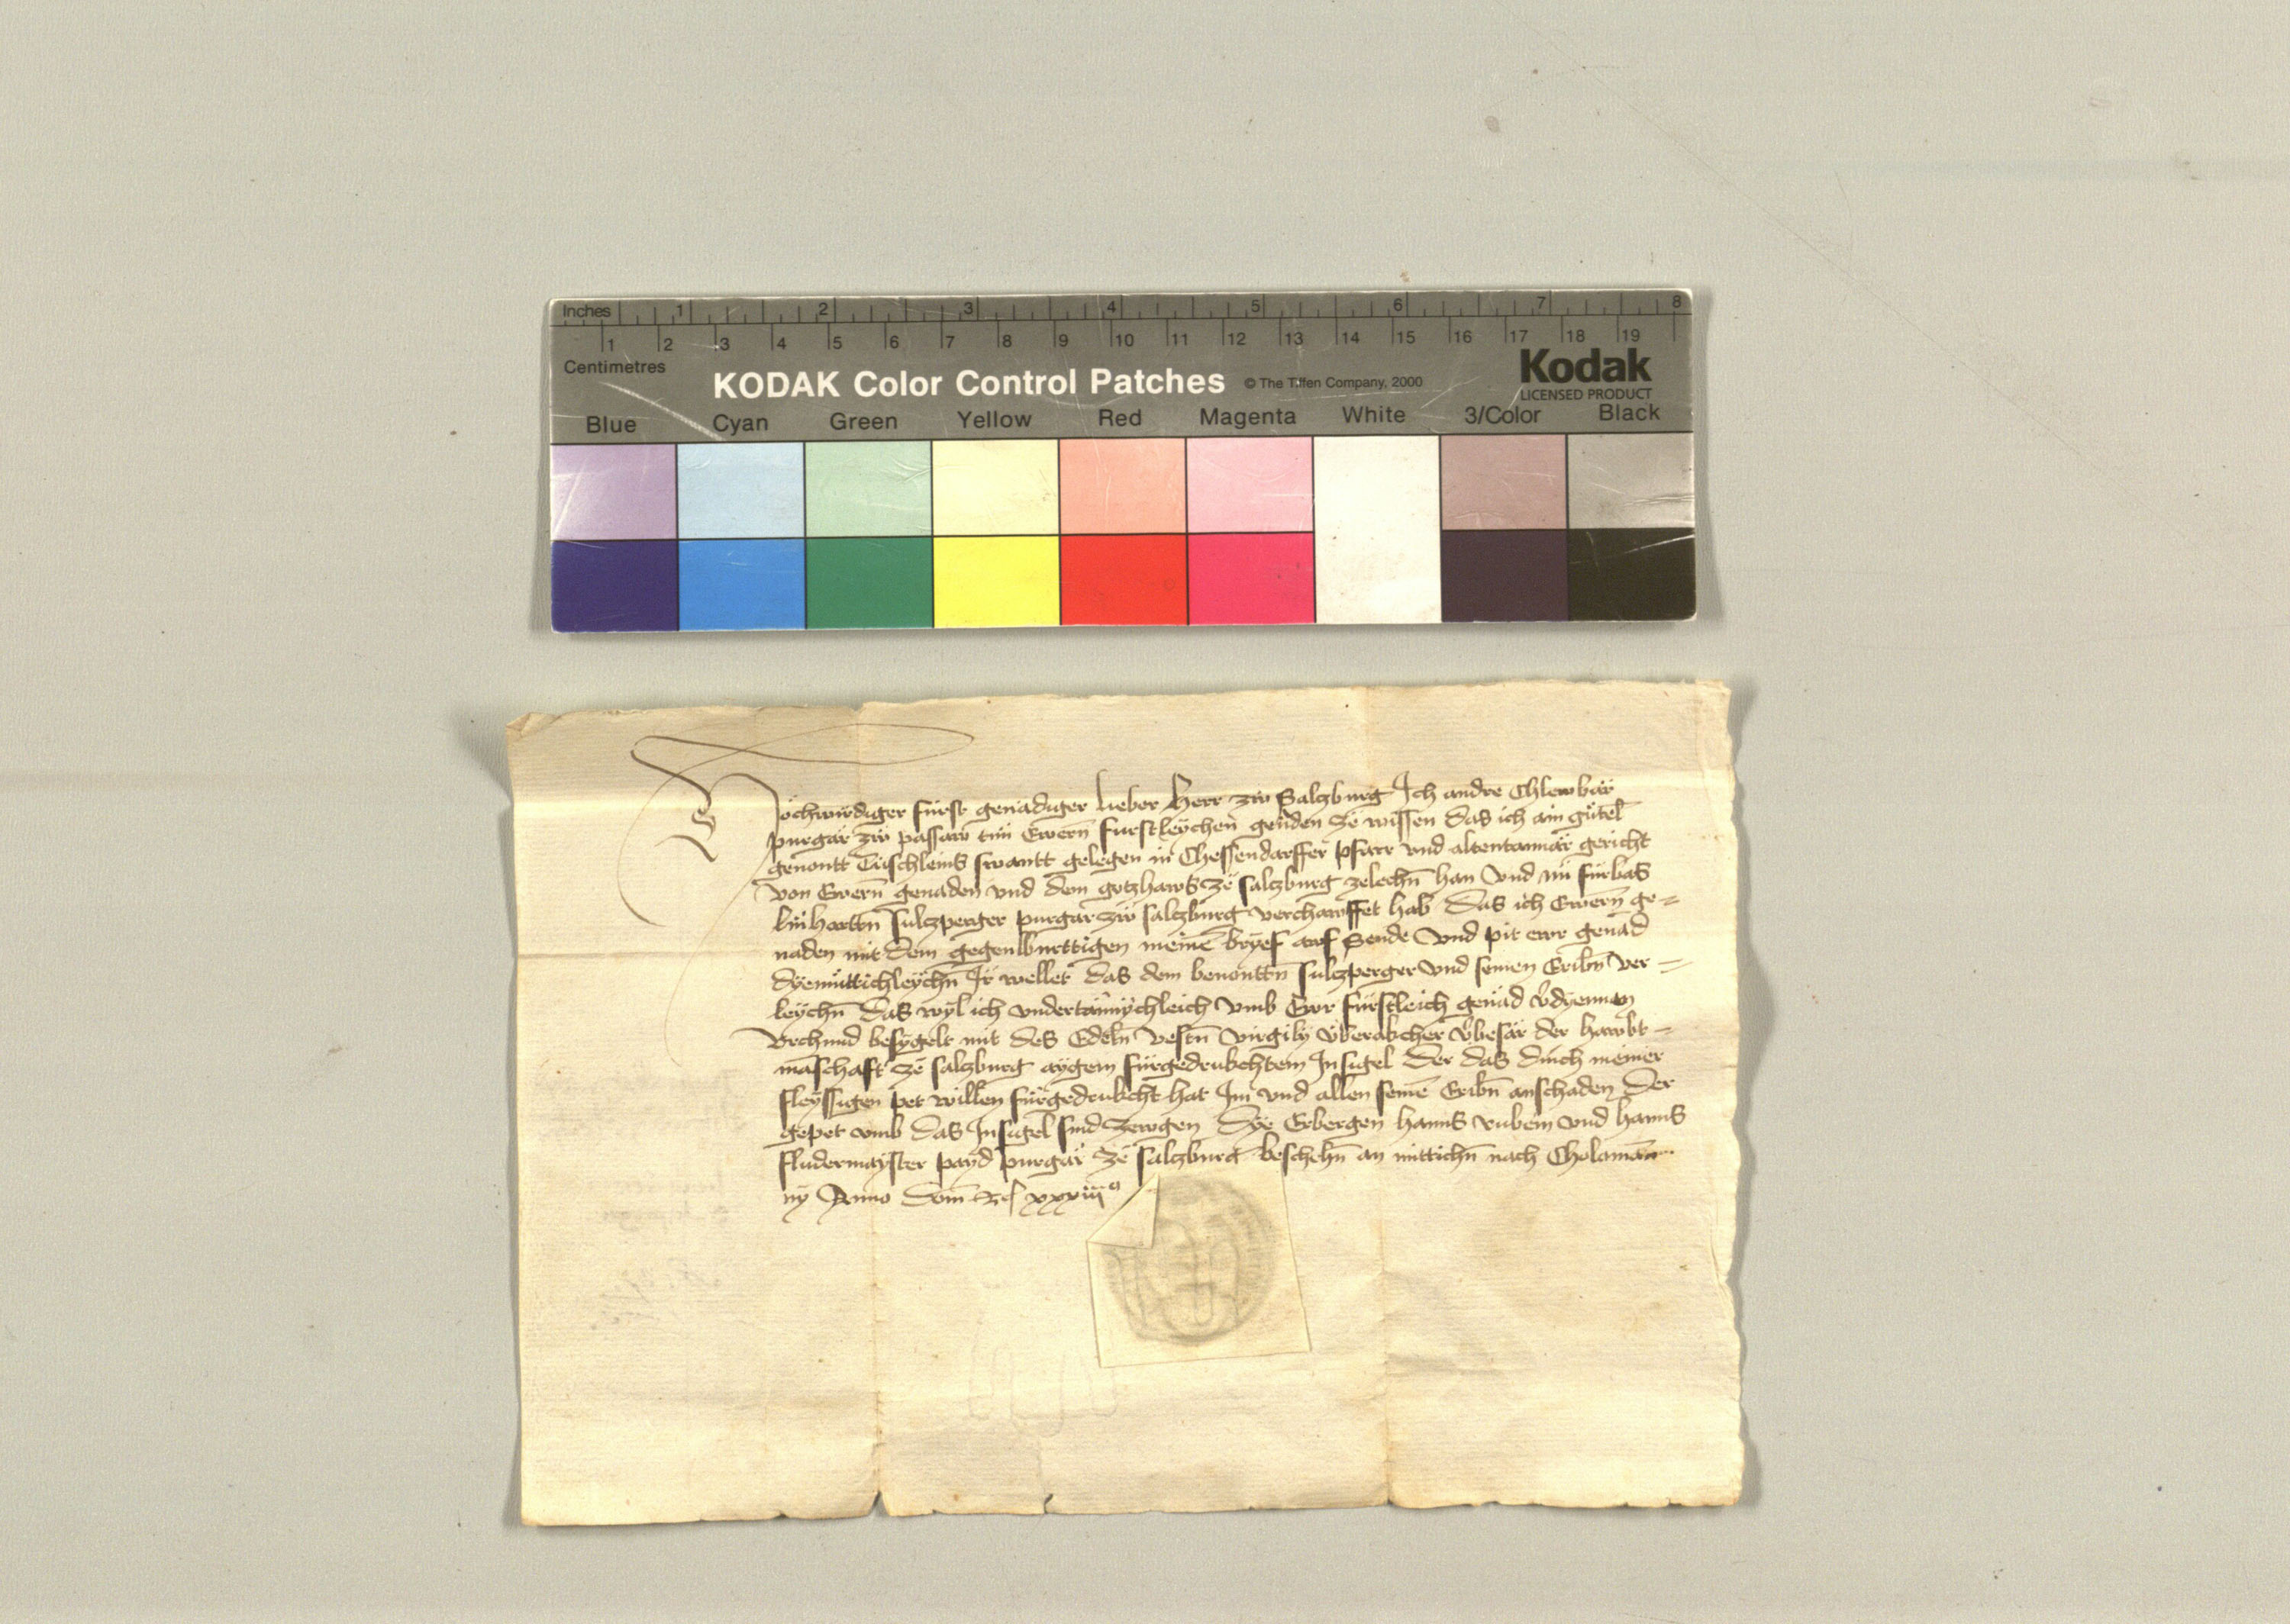 Inches 1 2 3 4 5 6 7 8
1 2 3 4 5 6 7 8 9 10 11 12 13 14 15 16 17 18 19
Centimetres
KODAK Color Control Patches © The Tiffen Company, 2000 Kodak
LICENSED PRODUCT
Blue Cyan Green Yellow Red Magenta White 3/Color Black
Hochwirdiger fürst genädiger lieber Herr zw Salczburg Ich andre Chlewbär
purgär zw passaw tün Ewern̄ furstleychen genden ze wissen das ich ain gütel
genontt swantt gelegen in Chessendarffer pfarr vnd altentannär gericht
von Ewern̄ genaden vnd dem gotzhaws ze salczburg zelechn̄ han vnd nü fürbas
linhartn̄ Sulczperger purgär zw salczburg verchawffet hab das ich Ewern̄ ge=
naden mit dem gegenburttigen meinē bryef awf Sende vnd pit ewr genad
dyemüttichleychn̄ Ir wellet das dem benontn̄ Sulczperger vnd seinen Eribn̄ ver=
leychn̄ das wyl ich vndertannychleich vmb Ewr fürstleich genäd v̄dyennen
Vrchund besygelt mit des Edeln̄ vestn̄ virgily überakcher v̄besär der hawbt=
māschaft ze salczburg aygem fürgedrukchtem Insigel der das durch meiner
fleyssigen pet willen fürgedrukcht hat Im vnd allen seinē Eribn̄ anschaden Der
gepet vmb das Insigel sind zewgen Dye Erbergen hanns rubein vnd hanns
fludermayster payd purgär ze salczburg beschehn̄ an mittichn̄ nach Cholomān
ny Anno dom̄ xxxiii°